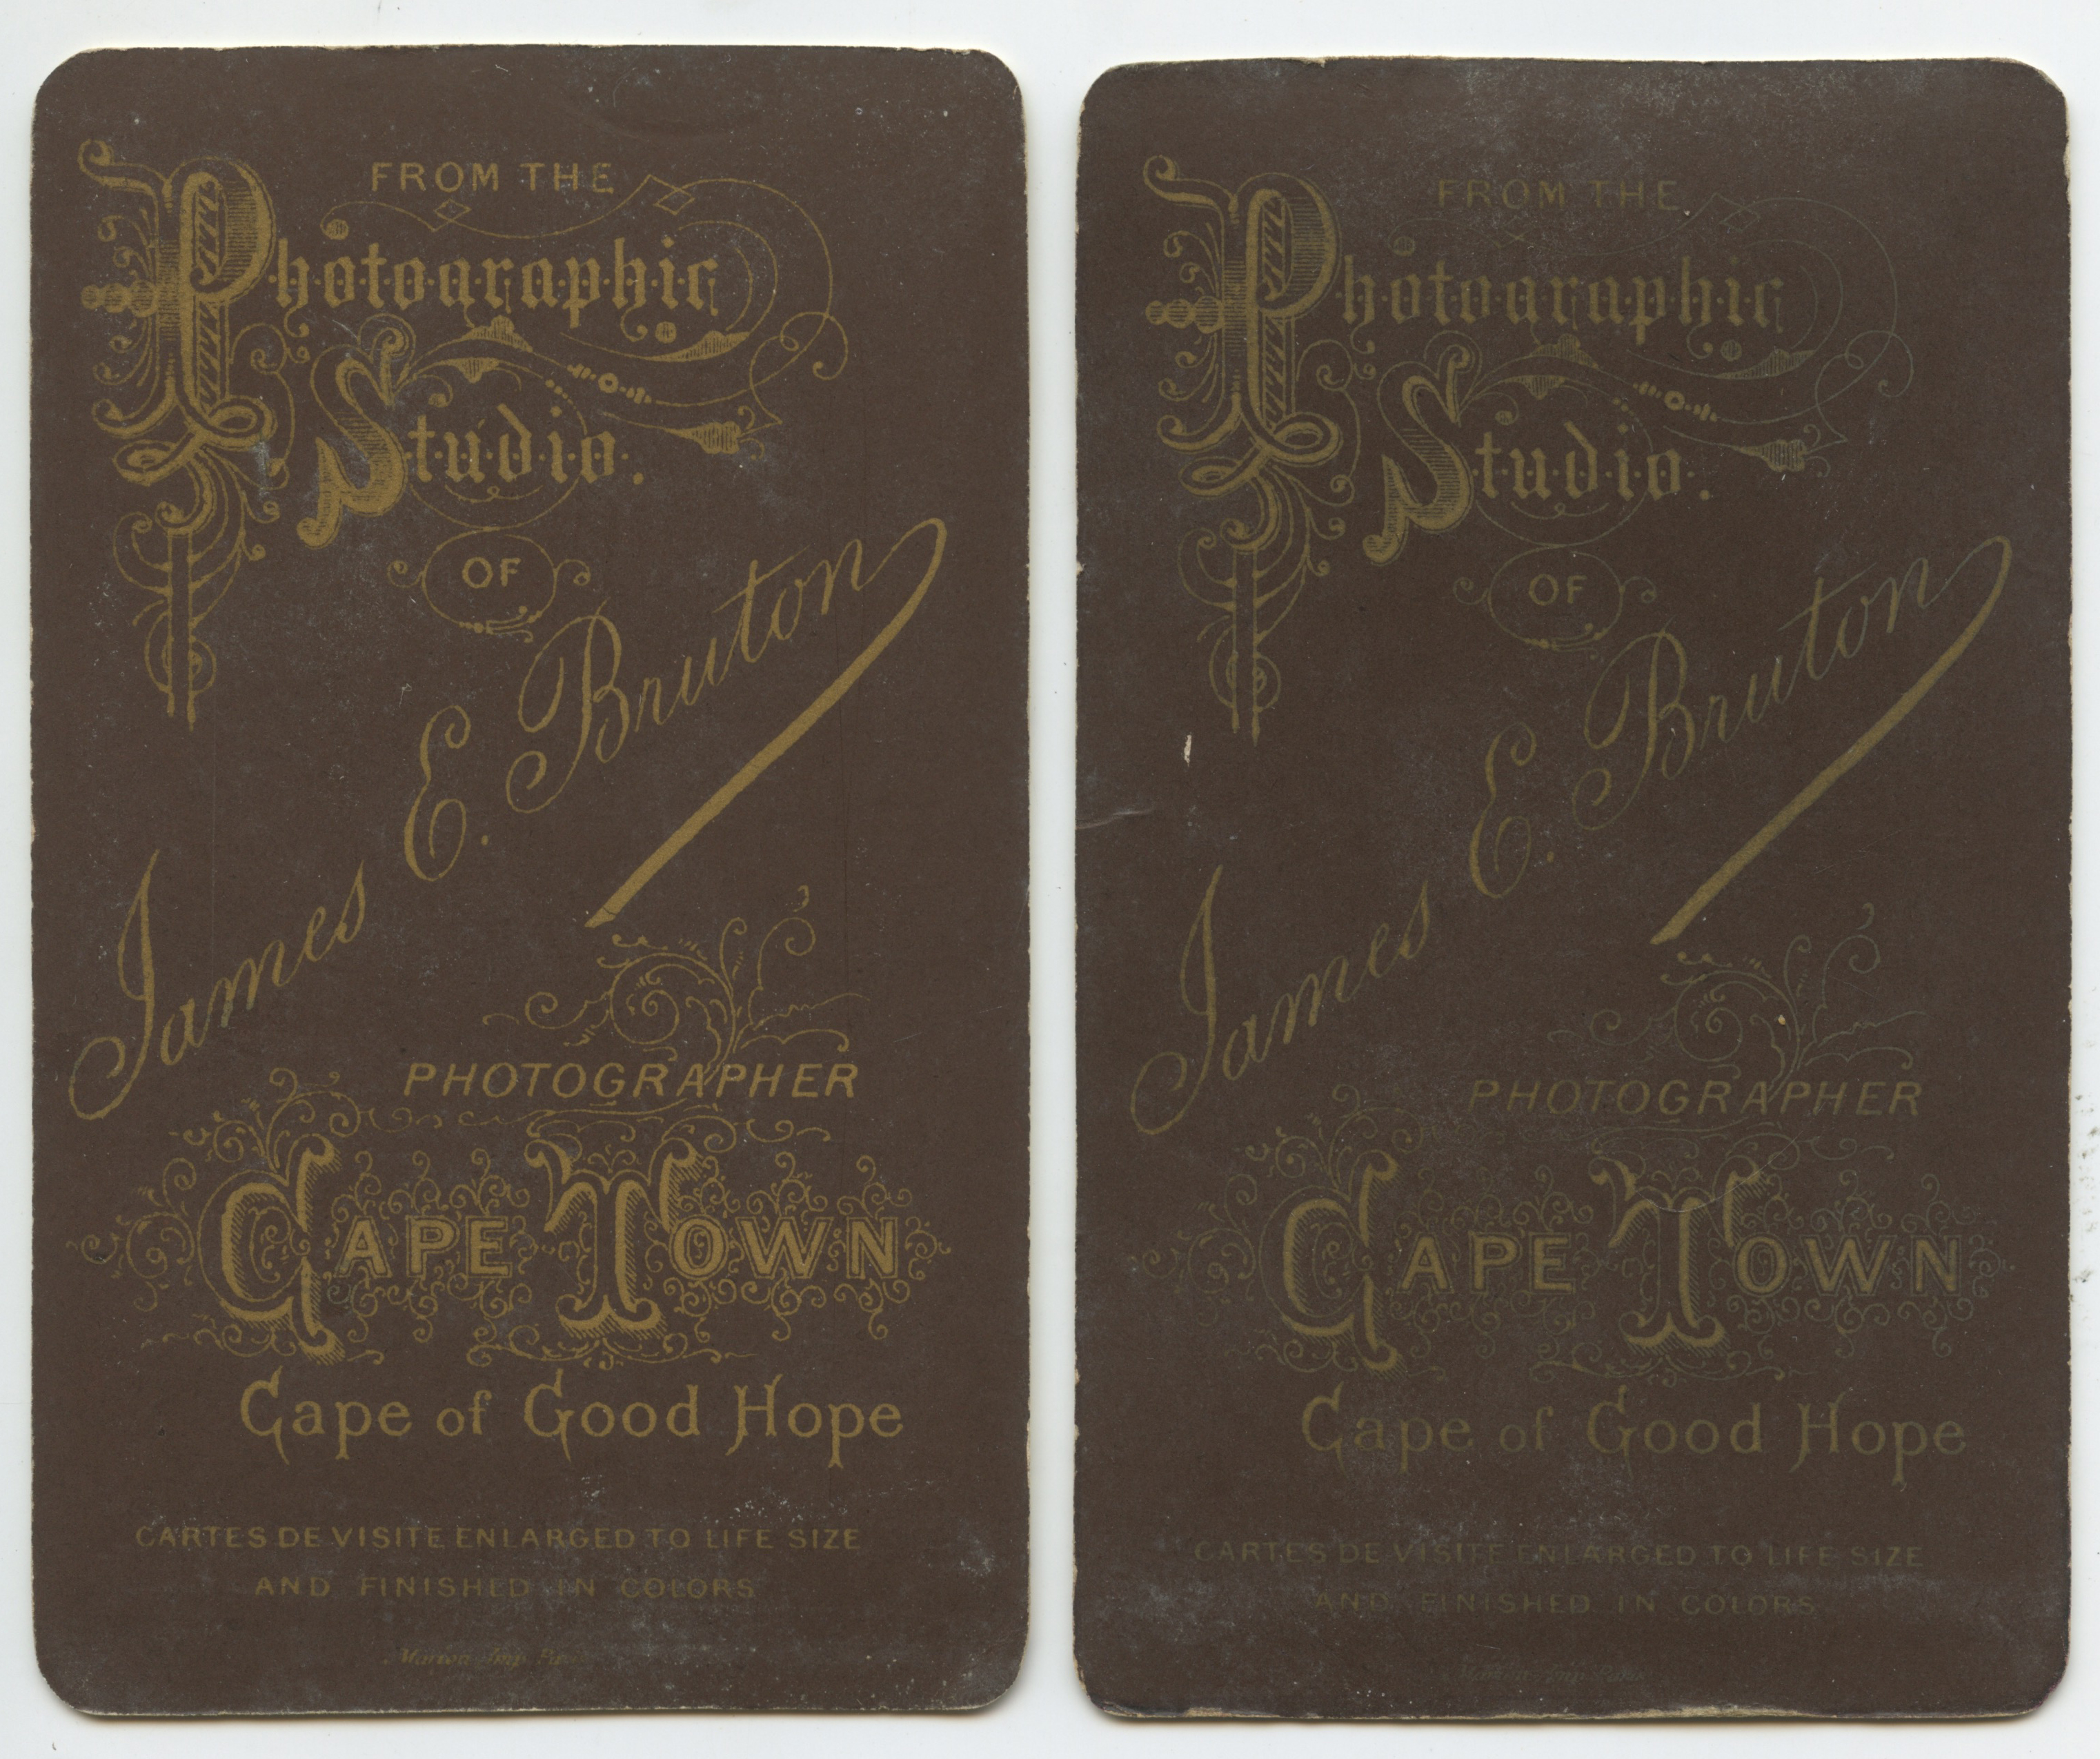 FROM THE
Photographic
Studio.
OF
James E. Bruton
PHOTOGRAPHER
CAPE TOWN
Cape of Good Hope
CARTES DE VISITE ENLARGED TO LIFE SIZE
AND FINISHED IN COLORS
Marion Imp Paris
FROM THE
Photographic
Studio.
OF
James E. Bruton
PHOTOGRAPHER
CAPE TOWN
Cape of Good Hope
CARTES DE VISITE ENLARGED TO LIFE SIZE
AND FINISHED IN COLORS
Imp Paris